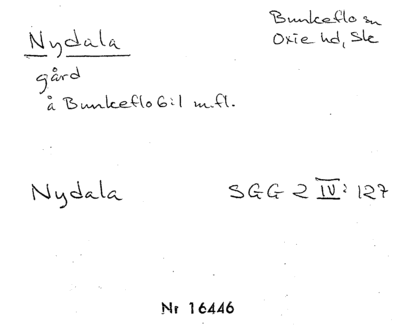 Nydala
Bunkeflo sn
Oxie hd, Sk
gård
å Bunkeflo 6:1 m.fl.
Nydala
SGG 2 IV: 127
Nr 16446